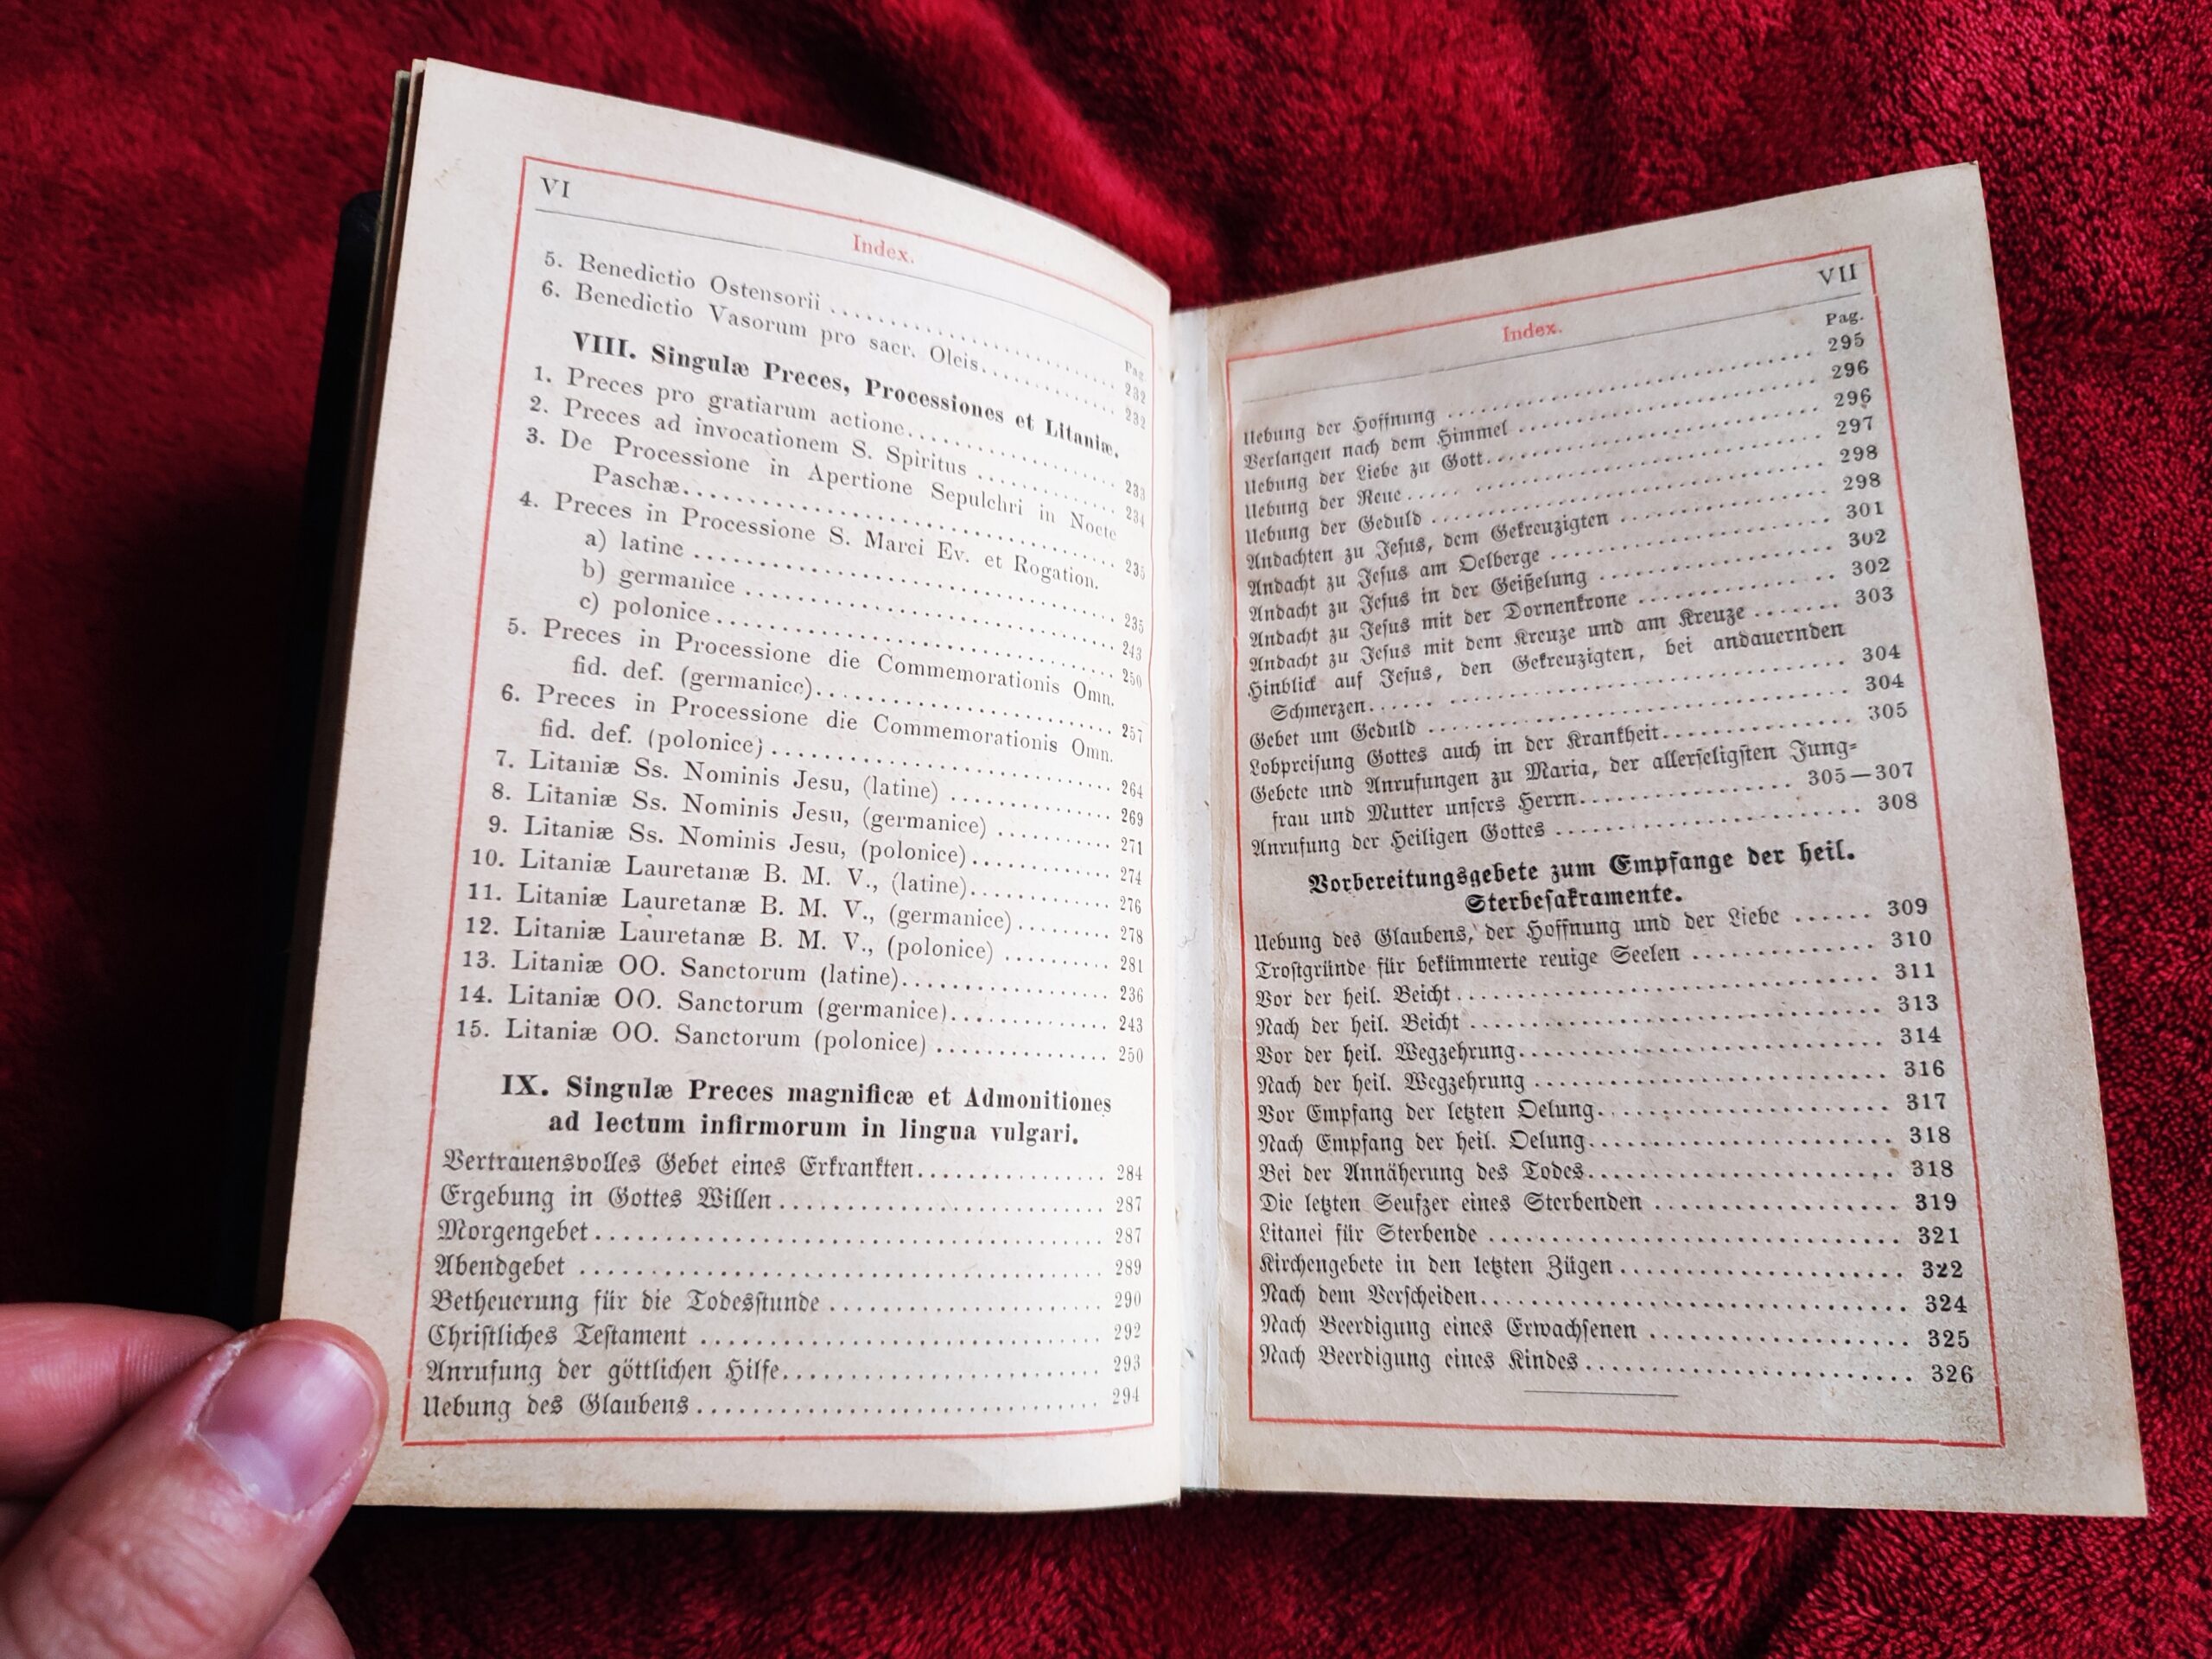 VI
Index.
Pag.
5. Benedictio Ostensorii ........................ 232
6. Benedictio Vasorum pro sacr. Oleis............ 232
VIII. Singulæ Preces, Processiones et Litaniæ.
1. Preces pro gratiarum actione.................. 233
2. Preces ad invocationem S. Spiritus ........... 234
3. De Processione in Apertione Sepulchri in Nocte
Paschæ........................................... 235
4. Preces in Processione S. Marci Ev. et Rogation.
a) latine ....................................... 235
b) germanice .................................... 243
c) polonice...................................... 250
5. Preces in Processione die Commemorationis Omn.
fid. def. (germanice)............................ 257
6. Preces in Processione die Commemorationis Omn.
fid. def. (polonice) ............................ 264
7. Litaniæ Ss. Nominis Jesu, (latine) ........... 269
8. Litaniæ Ss. Nominis Jesu, (germanice) ........ 271
9. Litaniæ Ss. Nominis Jesu, (polonice).......... 274
10. Litaniæ Lauretanæ B. M. V., (latine)......... 276
11. Litaniæ Lauretanæ B. M. V., (germanice)...... 278
12. Litaniæ Lauretanæ B. M. V., (polonice) ...... 281
13. Litaniæ OO. Sanctorum (latine)............... 236
14. Litaniæ OO. Sanctorum (germanice)............ 243
15. Litaniæ OO. Sanctorum (polonice) ............ 250
IX. Singulæ Preces magnificæ et Admonitiones
ad lectum infirmorum in lingua vulgari.
Vertrauensvolles Gebet eines Erkrankten.......... 284
Ergebung in Gottes Willen........................ 287
Morgengebet...................................... 287
Abendgebet ...................................... 289
Betheuerung für die Todesstunde ................. 290
Christliches Testament .......................... 292
Anrufung der göttlichen Hilfe.................... 293
Uebung des Glaubens.............................. 294
VII
Index.
Pag.
Uebung der Hoffnung ............................. 295
Verlangen nach dem Himmel ....................... 296
Uebung der Liebe zu Gott......................... 296
Uebung der Reue ................................. 297
Uebung der Geduld ............................... 298
Andachten zu Jesus, dem Gekreuzigten ............ 298
Andacht zu Jesus am Oelberge .................... 301
Andacht zu Jesus in der Geißelung ............... 302
Andacht zu Jesus mit der Dornenkrone ............ 302
Andacht zu Jesus mit dem Kreuze und am Kreuze ....... 303
Hinblick auf Jesus, den Gekreuzigten, bei andauernden
Schmerzen........................................ 304
Gebet um Geduld ................................. 304
Lobpreisung Gottes auch in der Krankheit......... 305
Gebete und Anrufungen zu Maria, der allerseligsten Jung-
frau und Mutter unsers Herrn................. 305—307
Anrufung der Heiligen Gottes .................... 308
Vorbereitungsgebete zum Empfange der heil.
Sterbesakramente.
Uebung des Glaubens, der Hoffnung und der Liebe ...... 309
Trostgründe für bekümmerte reuige Seelen ........ 310
Vor der heil. Beicht............................. 311
Nach der heil. Beicht ........................... 313
Vor der heil. Wegzehrung......................... 314
Nach der heil. Wegzehrung ....................... 316
Vor Empfang der letzten Oelung................... 317
Nach Empfang der heil. Oelung.................... 318
Bei der Annäherung des Todes..................... 318
Die letzten Seufzer eines Sterbenden ............ 319
Litanei für Sterbende ........................... 321
Kirchengebete in den letzten Zügen............... 322
Nach dem Verscheiden............................. 324
Nach Beerdigung eines Erwachsenen ............... 325
Nach Beerdigung eines Kindes..................... 326